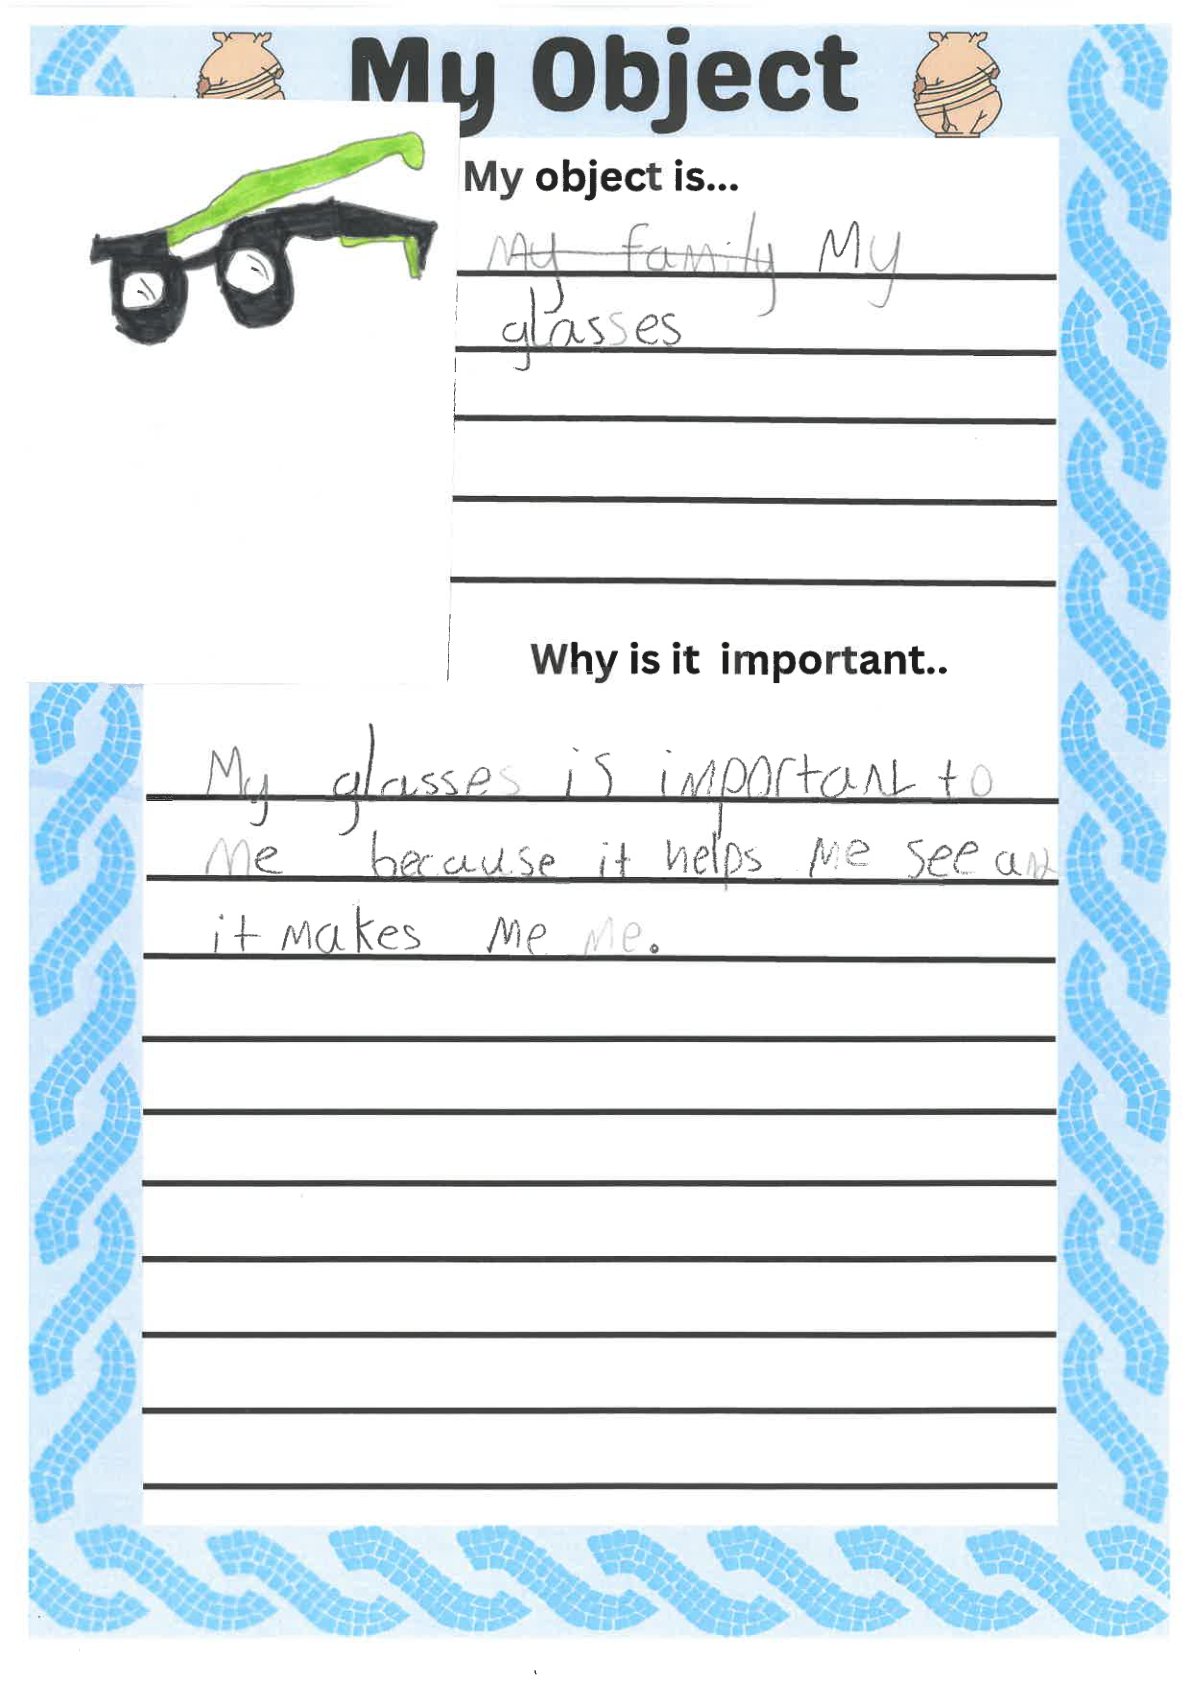 My Object
My object is...
My family My
glasses
Why is it important..
My glasses is important to
me because it helps me see and
it makes me me.